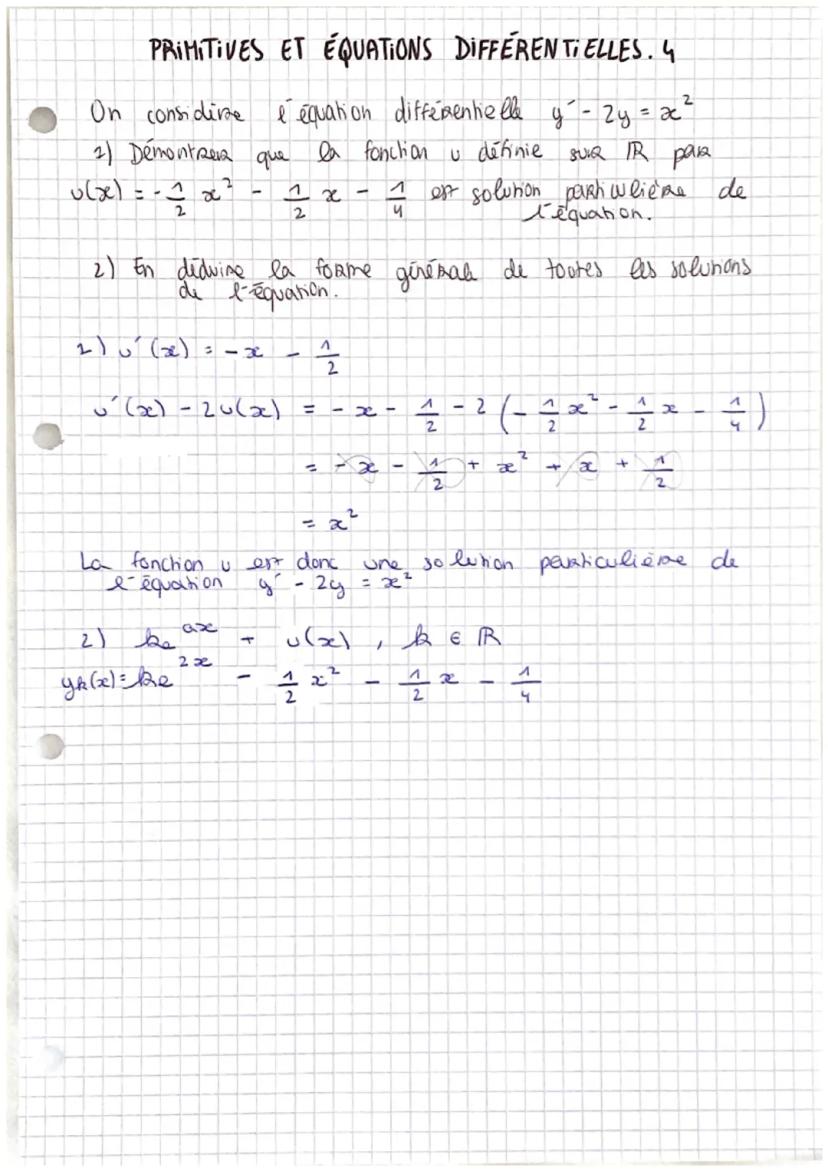 PRIMITIVES ET ÉQUATIONS DIFFÉRENTIELLES. 4
On considère l'équation différentielle y' - 2y = x²
1) Démontrer que la fonction u définie sur IR par
u(x) = - 1/2 x² - 1/2 x - 1/4 est solution particulière de
l'équation.
2) En déduire la forme générale de toutes les solutions
de l'équation.
1) u'(x) = -x - 1/2
u'(x) - 2u(x) = - x - 1/2 - 2 (- 1/2 x² - 1/2 x - 1/4)
= - x - 1/2 + x² + x + 1/2
= x²
La fonction u est donc une solution particulière de
l'équation y' - 2y = x²
2) ke^ax + u(x), k ∈ IR
yk(x) = ke^2x - 1/2 x² - 1/2 x - 1/4